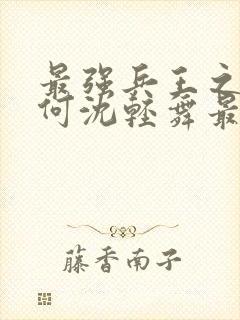 最强兵王之
何沈轻舞最
藤香南子